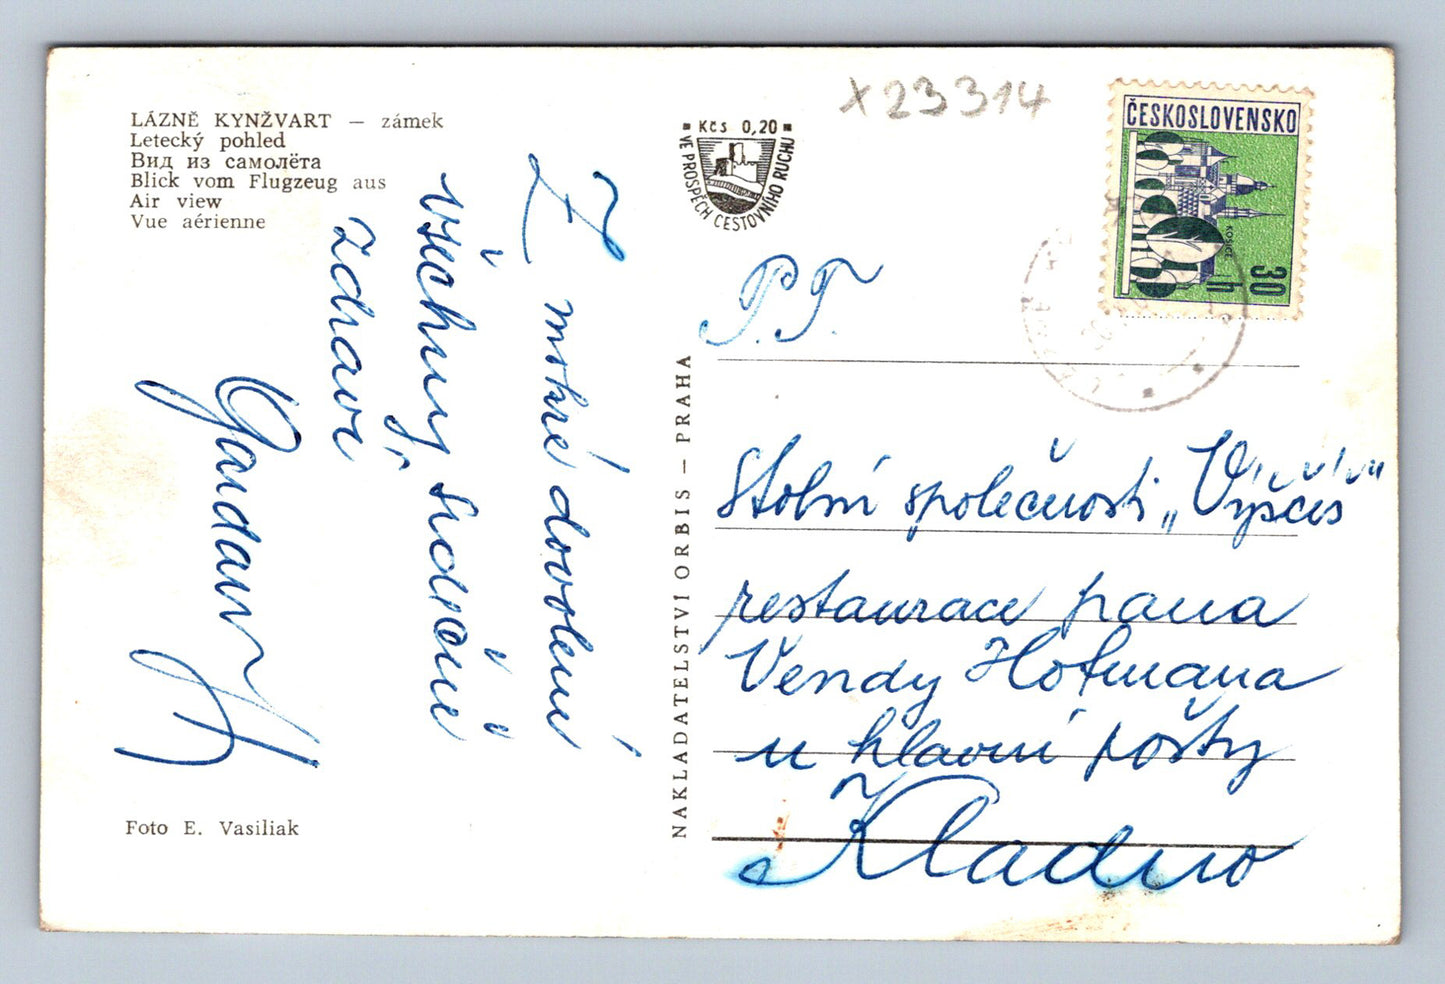 LÁZNĚ KYNŽVART — zámek
Letecký pohled
Вид из самолёта
Blick vom Flugzeug aus
Air view
Vue aérienne
Z mokré dovolené
všechny srdečně
zdraví
Foto E. Vasiliak
NAKLADATELSTVI ORBIS – PRAHA
Kčs 0,20
VE PROSPĚCH CESTOVNÍHO RUCHU
x23314
ČESKOSLOVENSKO
KOŠICE
30 h
P. T.
Stolní společnosti „Výščis"
restaurace pana
Vendy Hofmana
u hlavní pošty
Kladno